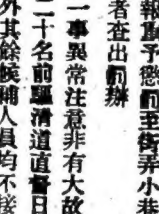 報重予懲罰至街弄小巷
者查出罰辦
一事異常注意非有大故
二十名前驅清道直督日
外其餘候補人員均不接